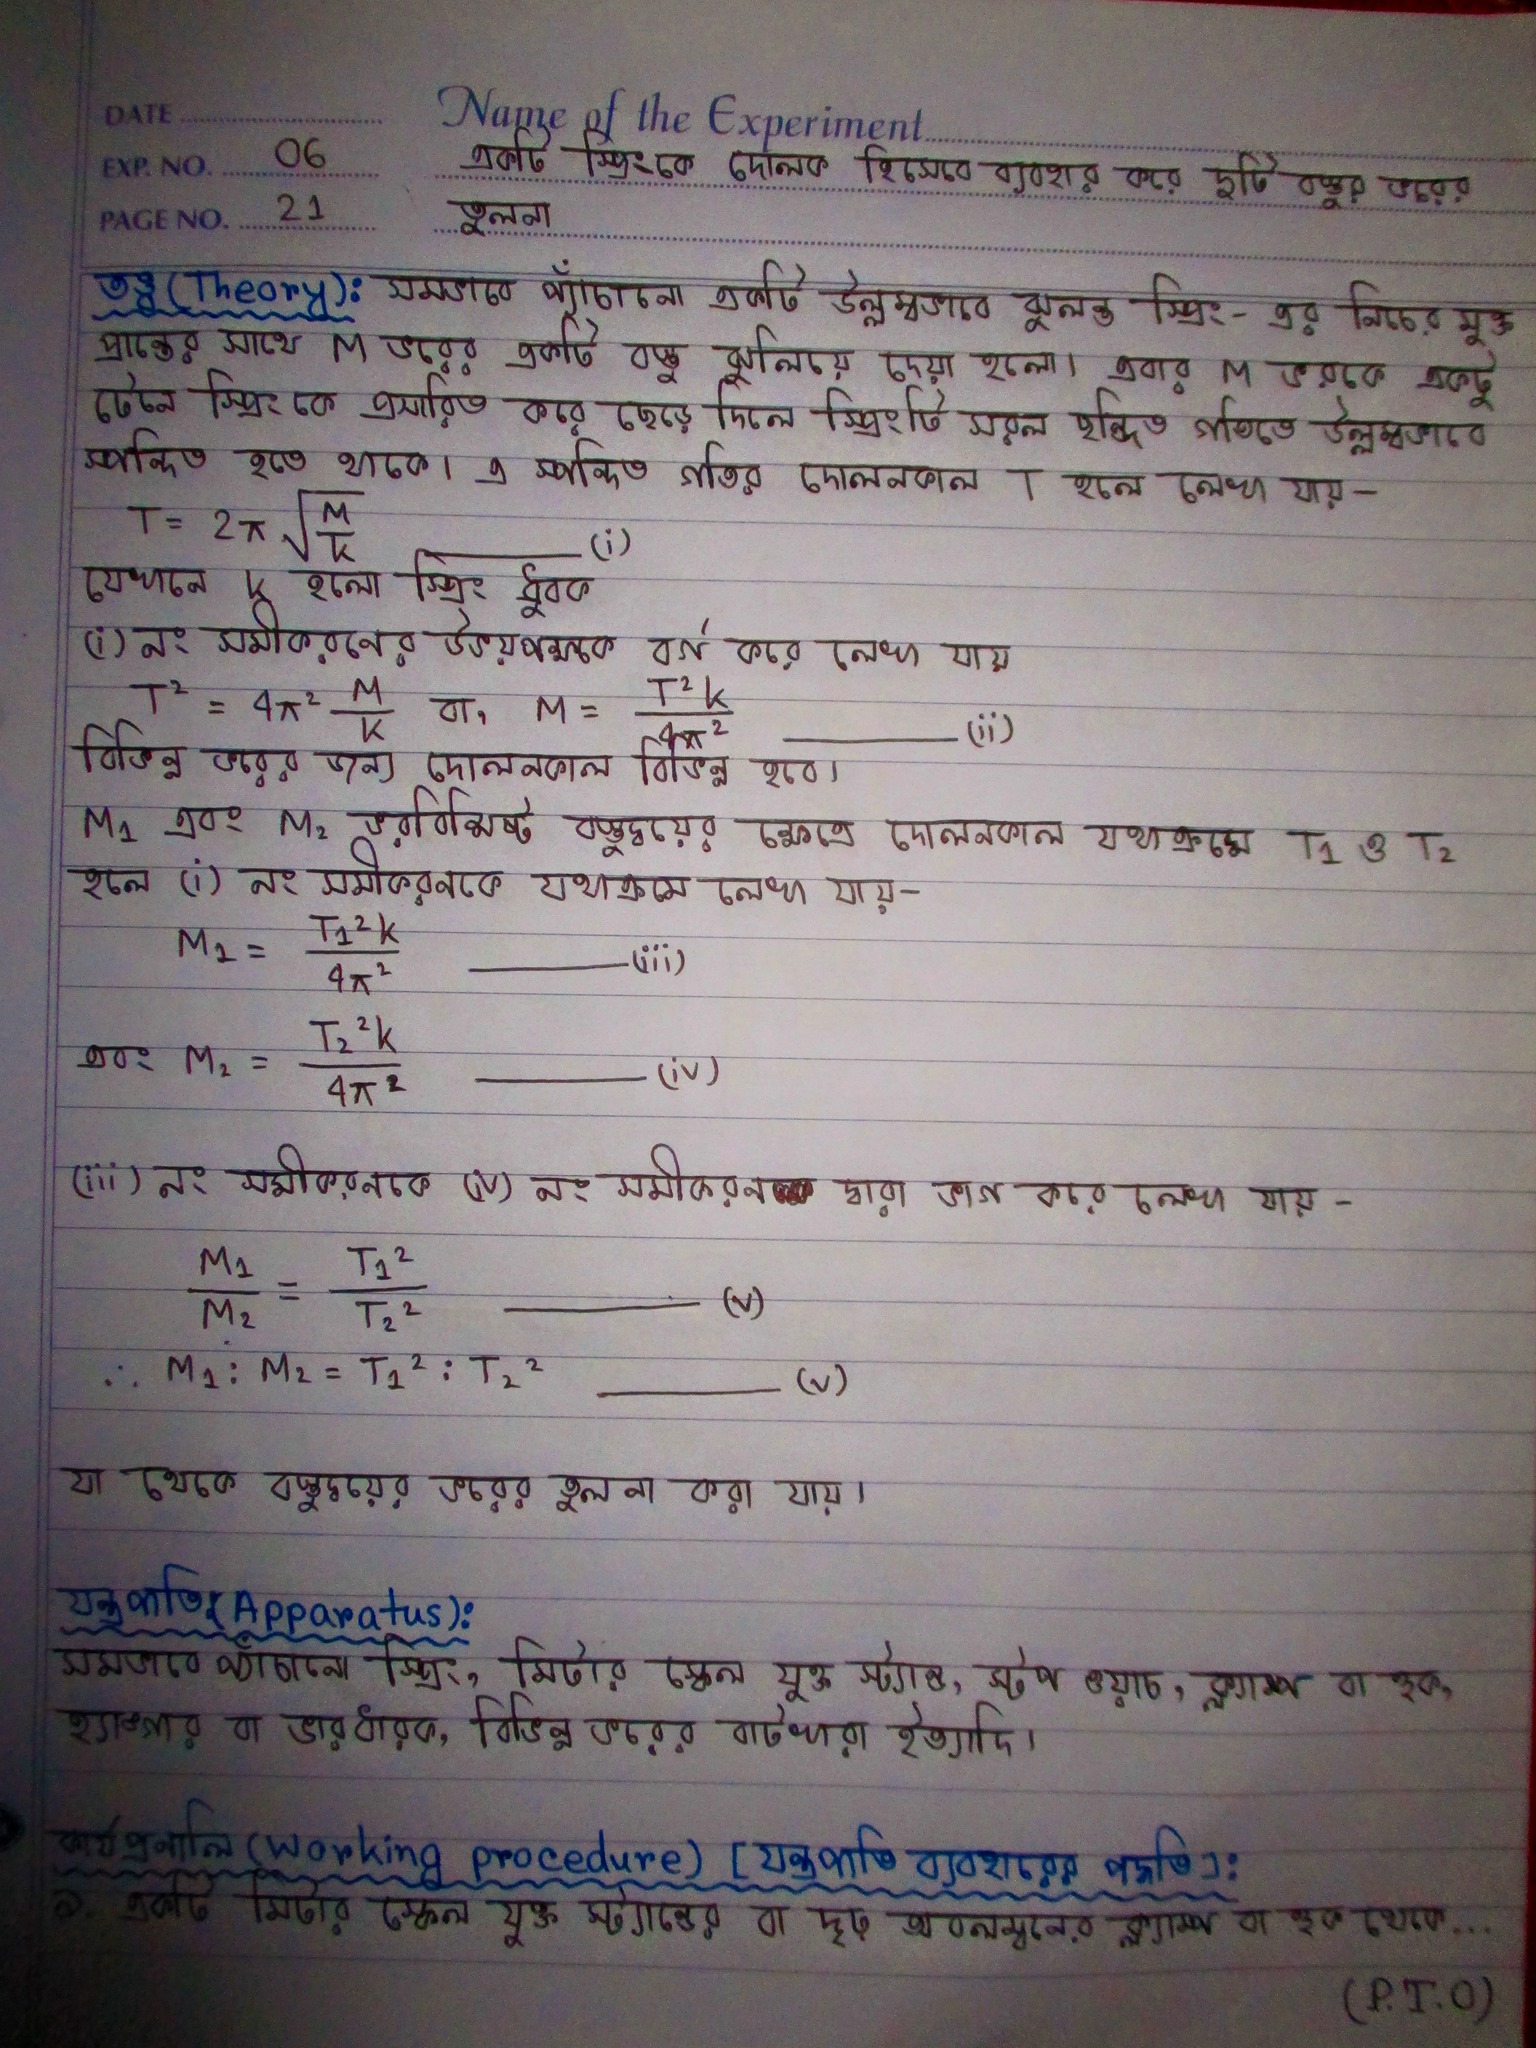 DATE .......... Name of the Experiment..........
EXP. NO. 06 একটি স্প্রিংকে দোলক হিসেবে ব্যবহার করে দুটি বস্তুর ভরের
PAGE NO. 21 তুলনা
তত্ত্ব (Theory): সমভাবে প্যাঁচানো একটি উল্লম্বভাবে ঝুলন্ত স্প্রিং- এর নিচের মুক্ত
প্রান্তের সাথে M ভরের একটি বস্তু ঝুলিয়ে দেয়া হলো। এবার M ভরকে একটু
টেনে স্প্রিংকে প্রসারিত করে ছেড়ে দিলে স্প্রিংটি সরল ছন্দিত গতিতে উল্লম্বভাবে
স্পন্দিত হতে থাকে। এ স্পন্দিত গতির দোলনকাল T হলে লেখা যায়-
T = 2π √(M/k) ——— (i)
যেখানে k হলো স্প্রিং ধ্রুবক
(i) নং সমীকরনের উভয়পক্ষকে বর্গ করে লেখা যায়
T² = 4π² M/k বা, M = T²k/4π² ——— (ii)
বিভিন্ন ভরের জন্য দোলনকাল বিভিন্ন হবে।
M₁ এবং M₂ ভরবিশিষ্ট বস্তুদ্বয়ের ক্ষেত্রে দোলনকাল যথাক্রমে T₁ ও T₂
হলে (i) নং সমীকরনকে যথাক্রমে লেখা যায়-
M₁ = T₁²k/4π² ——— (iii)
এবং M₂ = T₂²k/4π² ——— (iv)
(iii) নং সমীকরনকে (iv) নং সমীকরন দ্বারা ভাগ করে লেখা যায় -
M₁/M₂ = T₁²/T₂² ——— (v)
∴ M₁ : M₂ = T₁² : T₂² ——— (v)
যা থেকে বস্তুদ্বয়ের ভরের তুলনা করা যায়।
যন্ত্রপাতি (Apparatus):
সমভাবে প্যাঁচানো স্প্রিং, মিটার স্কেল যুক্ত স্ট্যান্ড, স্টপ ওয়াচ, ক্ল্যাম্প বা হুক,
হ্যাঙ্গার বা ভারধারক, বিভিন্ন ভরের বাটখারা ইত্যাদি।
কার্যপ্রনালি (Working procedure) [যন্ত্রপাতি ব্যবহারের পদ্ধতি]:
১. একটি মিটার স্কেল যুক্ত স্ট্যান্ডের বা দৃঢ় অবলম্বনের ক্ল্যাম্প বা হুক থেকে...
(P.T.O)